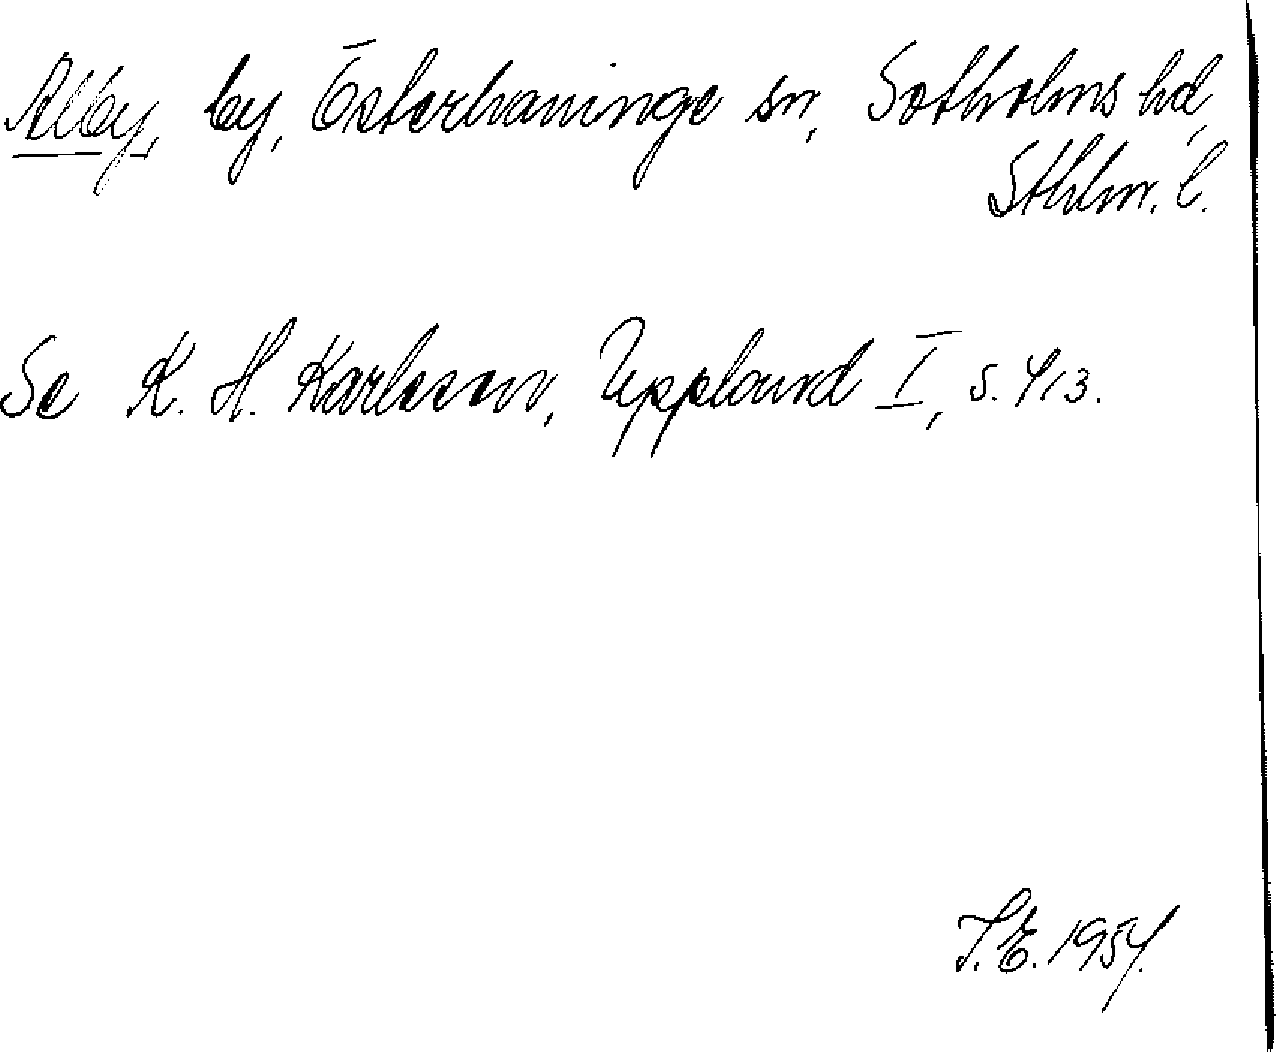 Alby, by, Österhaninge sn, Sotholms hd,
Sthlm. l.
Se K. H. Karlsson, Uppland I, s. 413.
I. E. 1954.